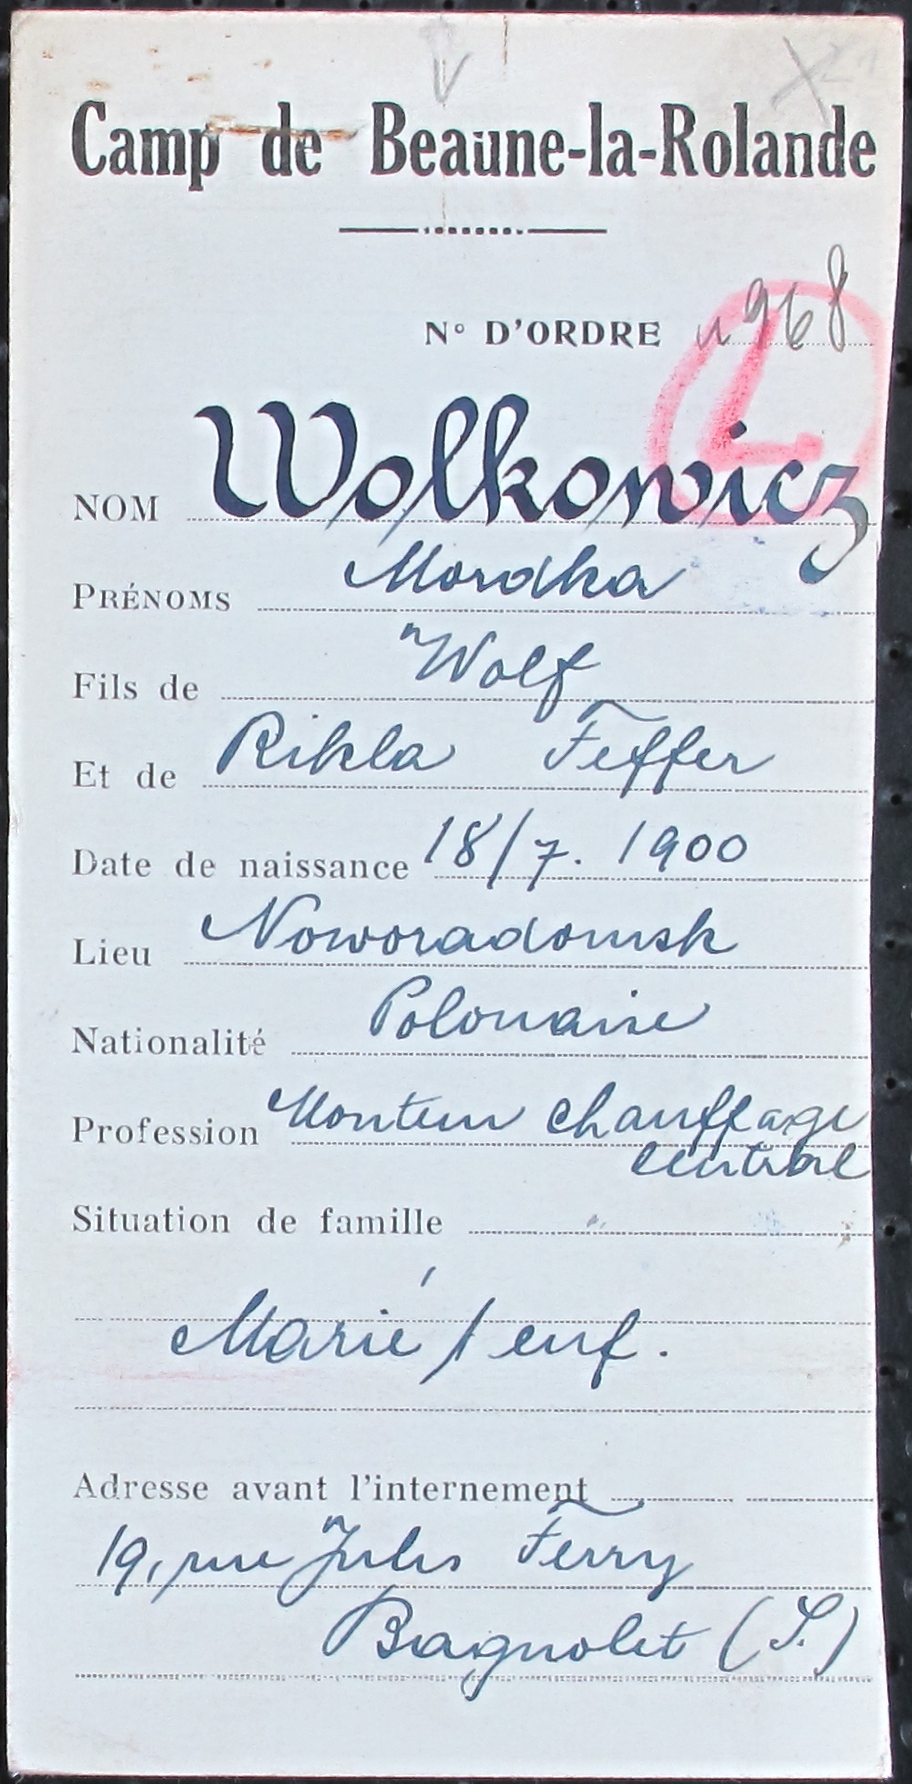 Camp de Beaune-la-Rolande
N° D'ORDRE 968
L
NOM Wolkowicz
PRÉNOMS Mordka
Fils de Wolf
Et de Rikla Feffer
Date de naissance 18/7. 1900
Lieu Noworadomsk
Nationalité Polonaise
Profession Monteur chauffage
central
Situation de famille
Marié 1 enf.
Adresse avant l'internement
19, rue Jules Ferry
Bagnolet (S.)